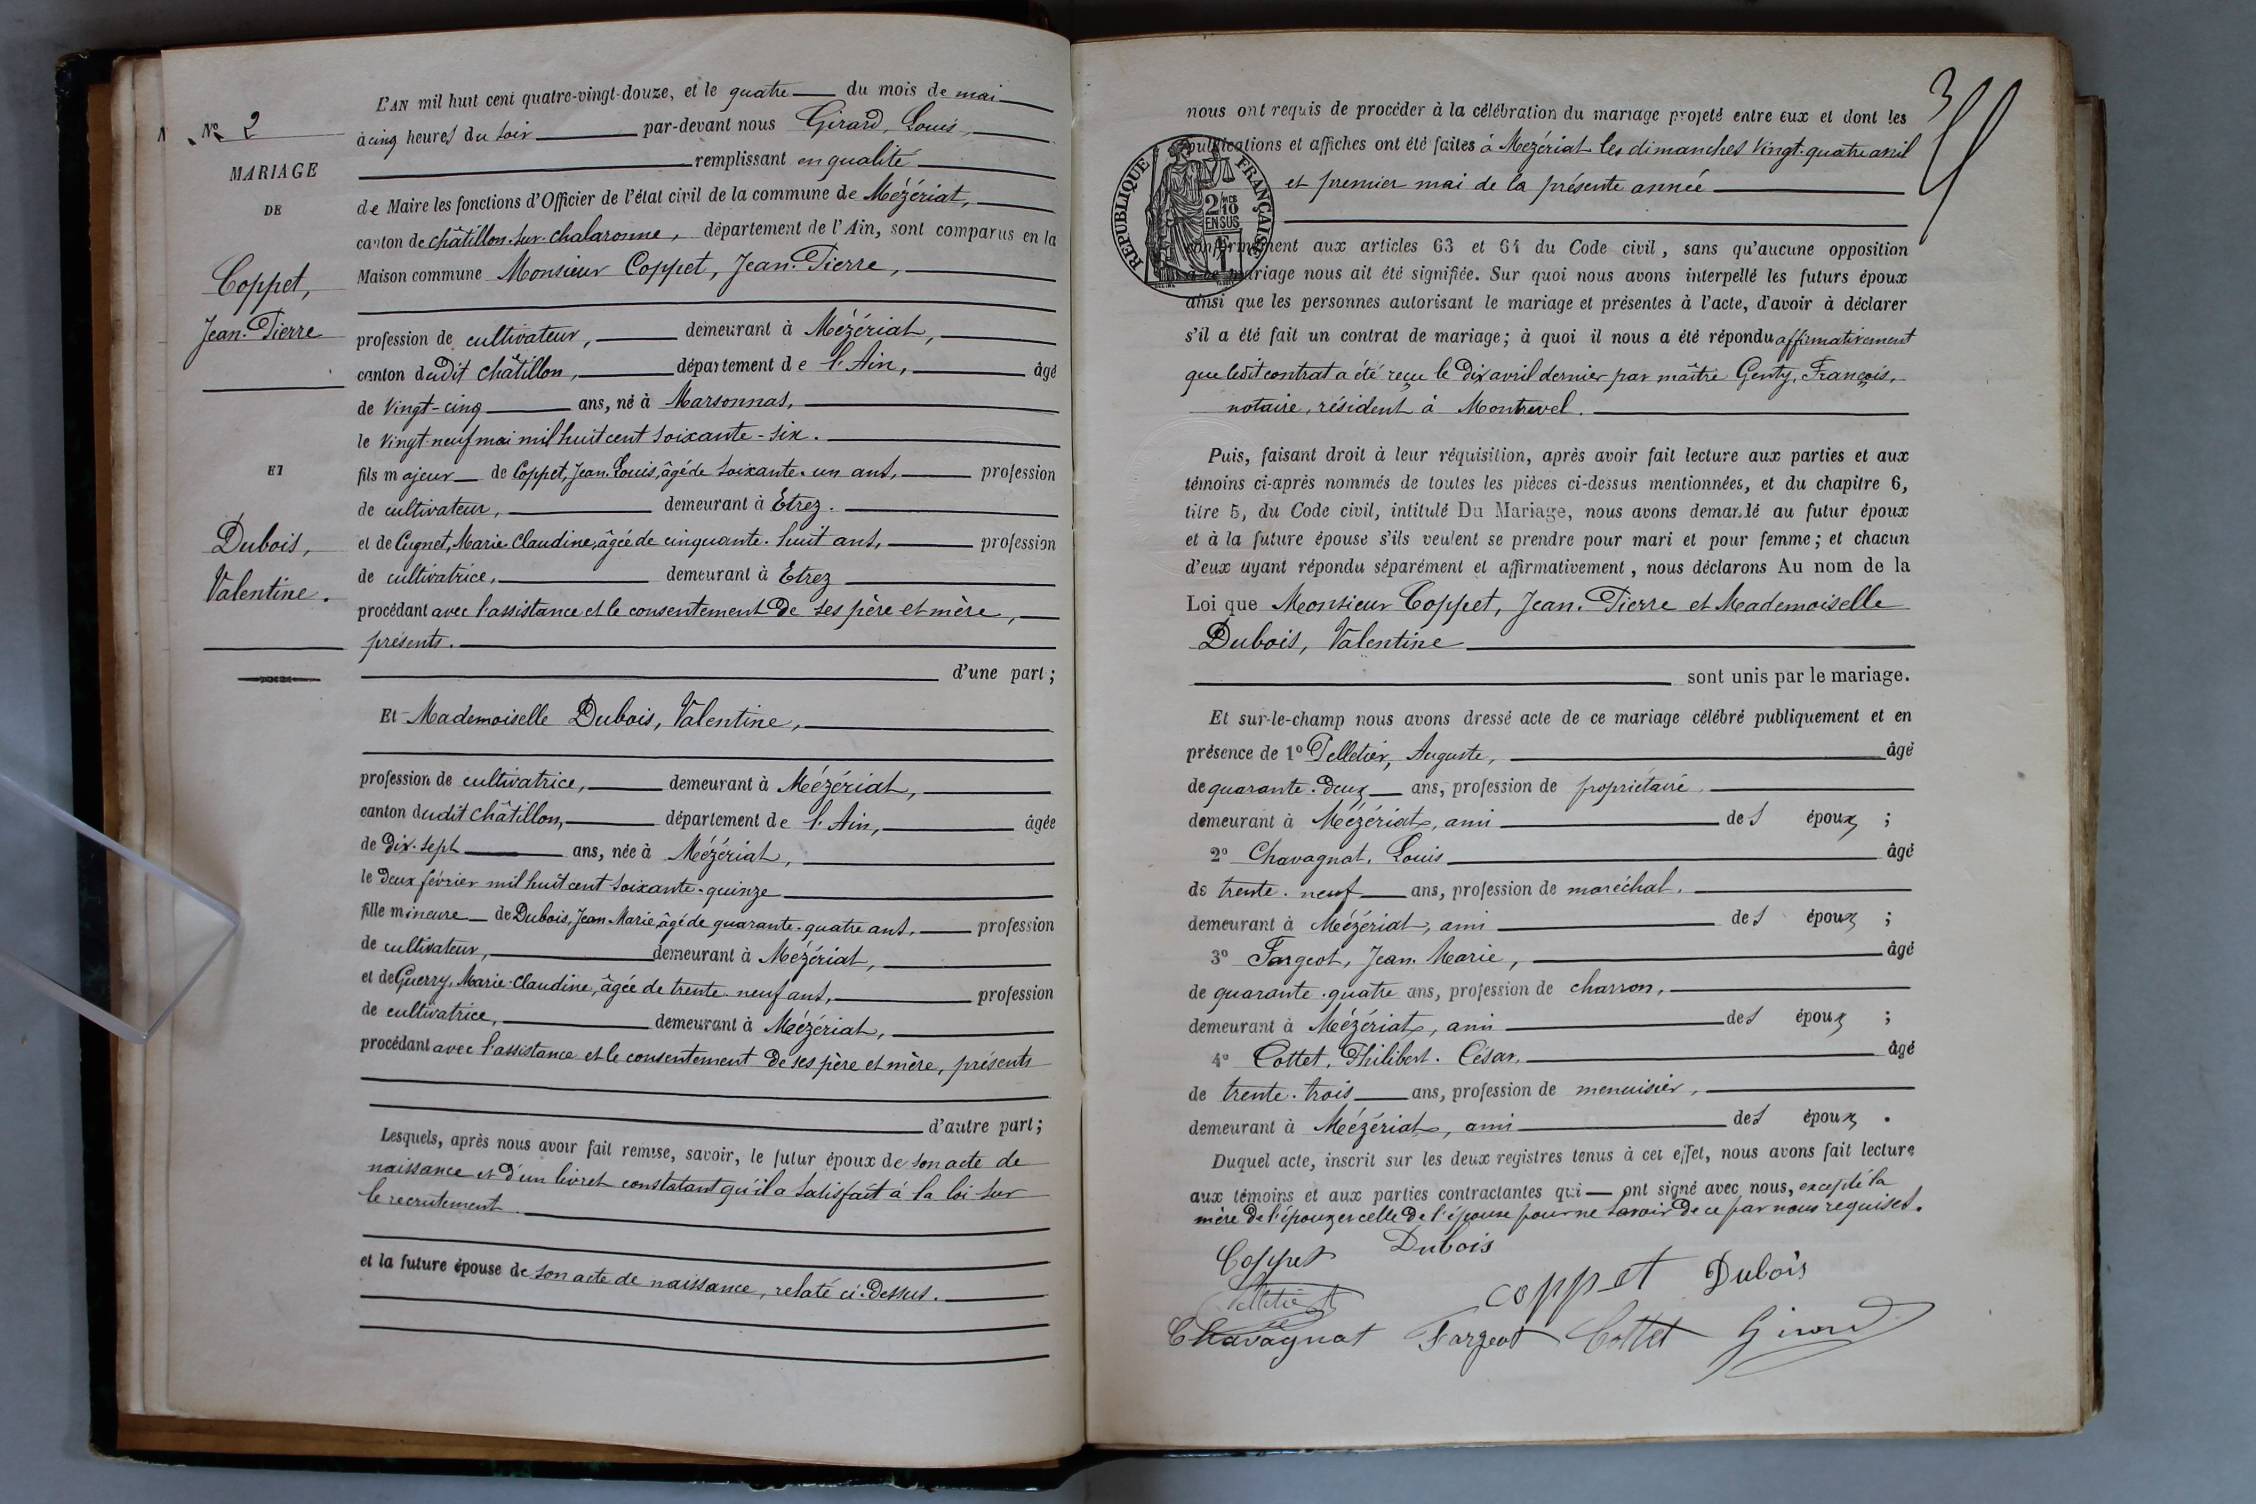 N° 2
MARIAGE
DE
Coppet,
Jean-Pierre
ET
Dubois,
Valentine.
L'AN mil huit cent quatre-vingt-douze, et le quatre du mois de mai
à cinq heures du soir par-devant nous Girard, Louis,
remplissant en qualité
de Maire les fonctions d'Officier de l'état civil de la commune de Mézériat,
canton de Châtillon-sur-Chalaronne, département de l'Ain, sont comparus en la
Maison commune Monsieur Coppet, Jean-Pierre,
profession de cultivateur, demeurant à Mézériat,
canton dudit Châtillon, département de l'Ain, âgé
de vingt-cinq ans, né à Marsonnas,
le vingt-neuf mai mil huit cent soixante-six.
fils majeur de Coppet, Jean-Louis, âgé de soixante-un ans, profession
de cultivateur, demeurant à Etrez.
et de Cugnet, Marie-Claudine, âgée de cinquante-huit ans, profession
de cultivatrice, demeurant à Etrez
procédant avec l'assistance et le consentement de ses père et mère,
présents.
d'une part;
Et Mademoiselle Dubois, Valentine,
profession de cultivatrice, demeurant à Mézériat,
canton dudit Châtillon, département de l'Ain, âgée
de dix-sept ans, née à Mézériat,
le deux février mil huit cent soixante-quinze
fille mineure de Dubois, Jean-Marie, âgé de quarante-quatre ans, profession
de cultivateur, demeurant à Mézériat,
et de Guerry, Marie-Claudine, âgée de trente-neuf ans, profession
de cultivatrice, demeurant à Mézériat,
procédant avec l'assistance et le consentement de ses père et mère, présents
d'autre part;
Lesquels, après nous avoir fait remise, savoir, le futur époux de son acte de
naissance et d'un livret constatant qu'il a satisfait à la loi sur
le recrutement.
et la future épouse de son acte de naissance, relaté ci-dessus.
nous ont requis de procéder à la célébration du mariage projeté entre eux et dont les
publications et affiches ont été faites à Mézériat les dimanches vingt-quatre avril
et premier mai de la présente année
RÉPUBLIQUE FRANÇAISE
2/10
EN SUS
conformément aux articles 63 et 64 du Code civil, sans qu'aucune opposition
à ce mariage nous ait été signifiée. Sur quoi nous avons interpellé les futurs époux
ainsi que les personnes autorisant le mariage et présentes à l'acte, d'avoir à déclarer
s'il a été fait un contrat de mariage; à quoi il nous a été répondu affirmativement
que ledit contrat a été reçu le dix avril dernier par maître Genty, François,
notaire, résident à Montrevel.
Puis, faisant droit à leur réquisition, après avoir fait lecture aux parties et aux
témoins ci-après nommés de toutes les pièces ci-dessus mentionnées, et du chapitre 6,
titre 5, du Code civil, intitulé Du Mariage, nous avons demandé au futur époux
et à la future épouse s'ils veulent se prendre pour mari et pour femme; et chacun
d'eux ayant répondu séparément et affirmativement, nous déclarons Au nom de la
Loi que Monsieur Coppet, Jean-Pierre et Mademoiselle
Dubois, Valentine
sont unis par le mariage.
Et sur-le-champ nous avons dressé acte de ce mariage célébré publiquement et en
présence de 1° Pelletier, Auguste, âgé
de quarante-deux ans, profession de propriétaire,
demeurant à Mézériat, ami des époux;
2° Chavagnat, Louis âgé
de trente-neuf ans, profession de maréchal,
demeurant à Mézériat, ami des époux;
3° Fargeot, Jean-Marie, âgé
de quarante-quatre ans, profession de charron,
demeurant à Mézériat, ami des époux;
4° Cottet, Philibert-César, âgé
de trente-trois ans, profession de menuisier,
demeurant à Mézériat, ami des époux.
Duquel acte, inscrit sur les deux registres tenus à cet effet, nous avons fait lecture
aux témoins et aux parties contractantes qui ont signé avec nous, excepté la
mère de l'époux et celle de l'épouse pour ne savoir de ce par nous requises.
Coppet Dubois
Pelletier coppet Dubois
Chavagnat Fargeot Cottet Girard